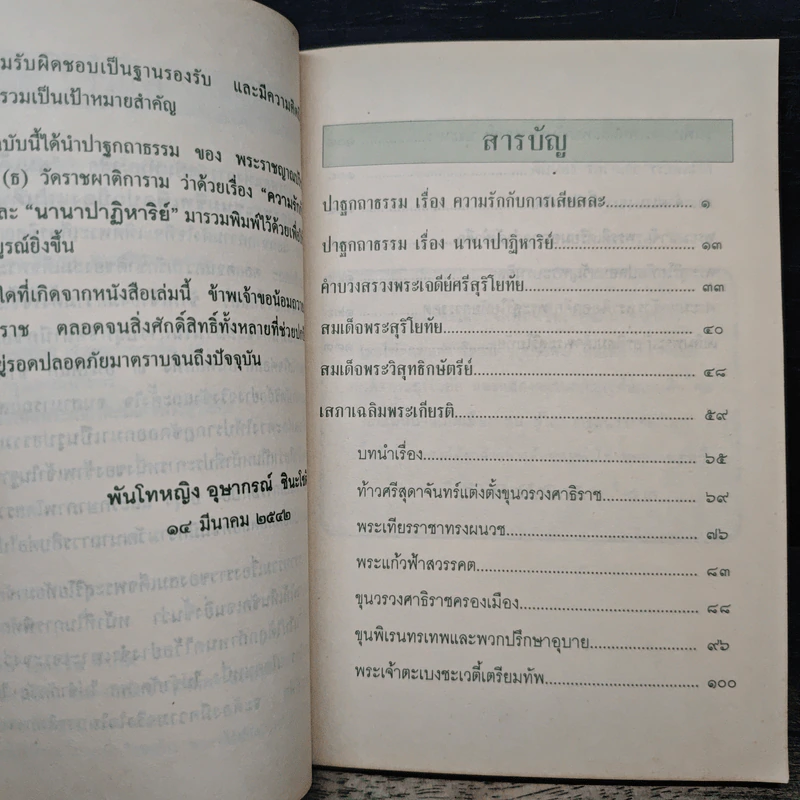 มรับผิดชอบเป็นฐานรองรับ และมีความคิด
รวมเป็นเป้าหมายสำคัญ
บับนี้ได้นำปาฐกถาธรรม ของ พระราชญาณ
(ธ) วัดราชผาติการาม ว่าด้วยเรื่อง “ความรัก
ละ “นานาปาฏิหาริย์” มารวมพิมพ์ไว้ด้วยเพื่อ
บูรณ์ยิ่งขึ้น
ใดที่เกิดจากหนังสือเล่มนี้ ข้าพเจ้าขอน้อมถวาย
ราช ตลอดจนสิ่งศักดิ์สิทธิ์ทั้งหลายที่ช่วย
ยู่รอดปลอดภัยมาตราบจนถึงปัจจุบัน
พันโทหญิง อุษากรณ์ ชินะโชติ
๑๔ มีนาคม ๒๕๔๒
สารบัญ
ปาฐกถาธรรม เรื่อง ความรักกับการเสียสละ..................... ๑
ปาฐกถาธรรม เรื่อง นานาปาฏิหาริย์............................... ๑๓
คำบวงสรวงพระเจดีย์ศรีสุริโยทัย.................................... ๓๓
สมเด็จพระสุริโยทัย........................................................ ๔๐
สมเด็จพระวิสุทธิกษัตรีย์................................................ ๔๘
เสภาเฉลิมพระเกียรติ..................................................... ๕๙
บทนำเรื่อง...................................................... ๖๕
ท้าวศรีสุดาจันทร์แต่งตั้งขุนวรวงศาธิราช.................. ๖๙
พระเทียรราชาทรงผนวช.......................................... ๗๖
พระแก้วฟ้าสวรรคต................................................ ๘๓
ขุนวรวงศาธิราชครองเมือง....................................... ๘๘
ขุนพิเรนทรเทพและพวกปรึกษาอุบาย...................... ๙๖
พระเจ้าตะเบงชะเวตี้เตรียมทัพ................................ ๑๐๐